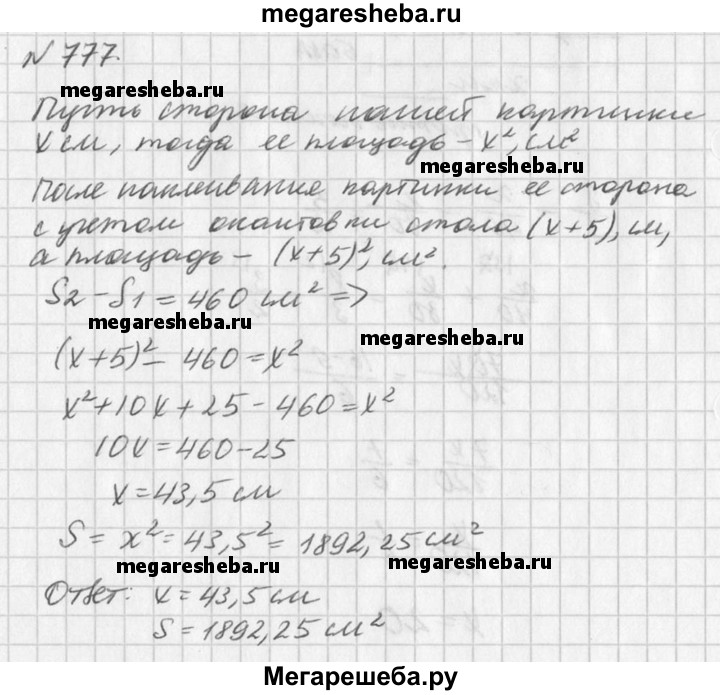 megaresheba.ru
N 777.
megaresheba.ru
Пусть сторона нашей картинки
x см, тогда ее площадь – x², см²
megaresheba.ru
После наклеивания картинки ее сторона
с учетом окантовки стала (x+5), см,
а площадь – (x+5)², см².
S2 - S1 = 460 см² =>
megaresheba.ru
megaresheba.ru
(x+5)² - 460 = x²
x² + 10x + 25 - 460 = x²
10x = 460 - 25
x = 43,5 см
S = x² = 43,5² = 1892,25 см²
megaresheba.ru
megaresheba.ru
Ответ: x = 43,5 см
S = 1892,25 см²
Мегарешеба.ру